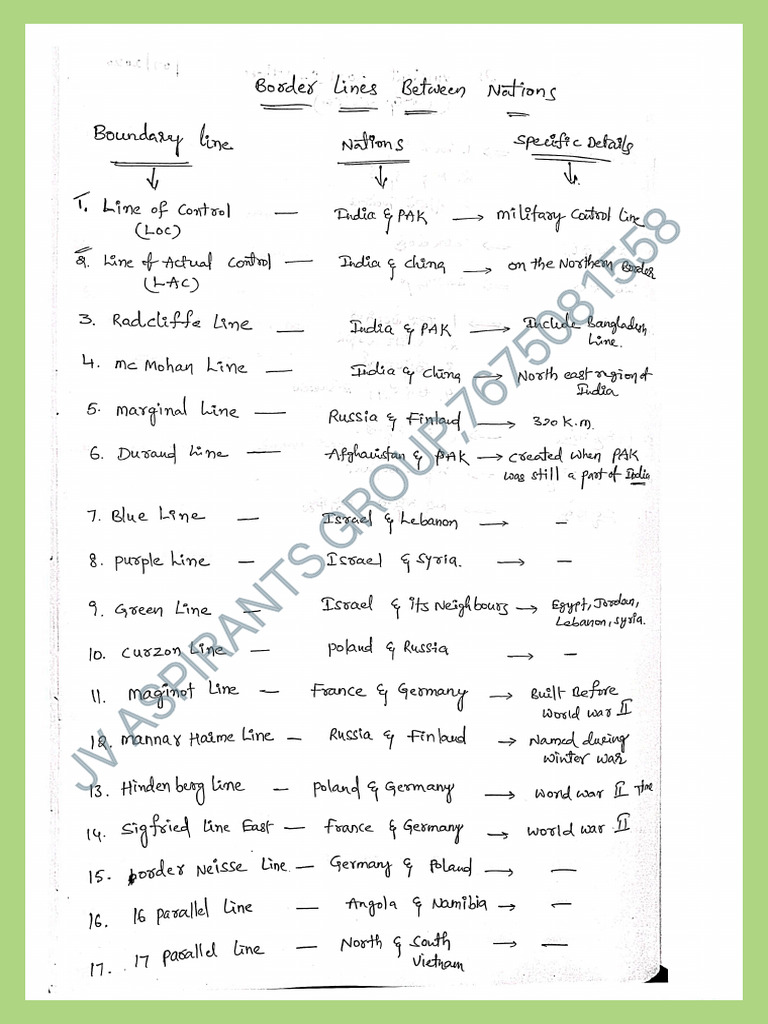 Border Lines Between Nations
Boundary line Nations Specific Details
1. Line of Control — India & PAK → military Control Line
(LOC)
2. Line of Actual Control — India & China → on the Northern Border
(LAC)
3. Radcliffe Line — India & PAK → Include Bangladesh
Line.
4. mc Mohan Line — India & China → North east region of
India
5. marginal Line — Russia & Finland → 320 K.m.
6. Durand Line — Afghanistan & PAK → created when PAK
was still a part of India
7. Blue Line — Israel & Lebanon → —
8. purple Line — Israel & Syria. → —
9. Green Line — Israel & its Neighbours → Egypt, Jordan,
Lebanon, Syria.
10. Curzon Line — poland & Russia → —
11. Maginot Line — France & Germany → Built Before
World war II
12. Mannar Haime Line — Russia & Finland → Named during
winter war
13. Hinden berg line — Poland & Germany → World war II Time
14. Sigfried Line East — France & Germany → World war II
15. border Neisse Line — Germany & Poland → —
16. 16 parallel Line — Angola & Namibia → —
17. 17 parallel Line — North & South → —
Vietnam
JV ASPIRANTS GROUP,7675081558